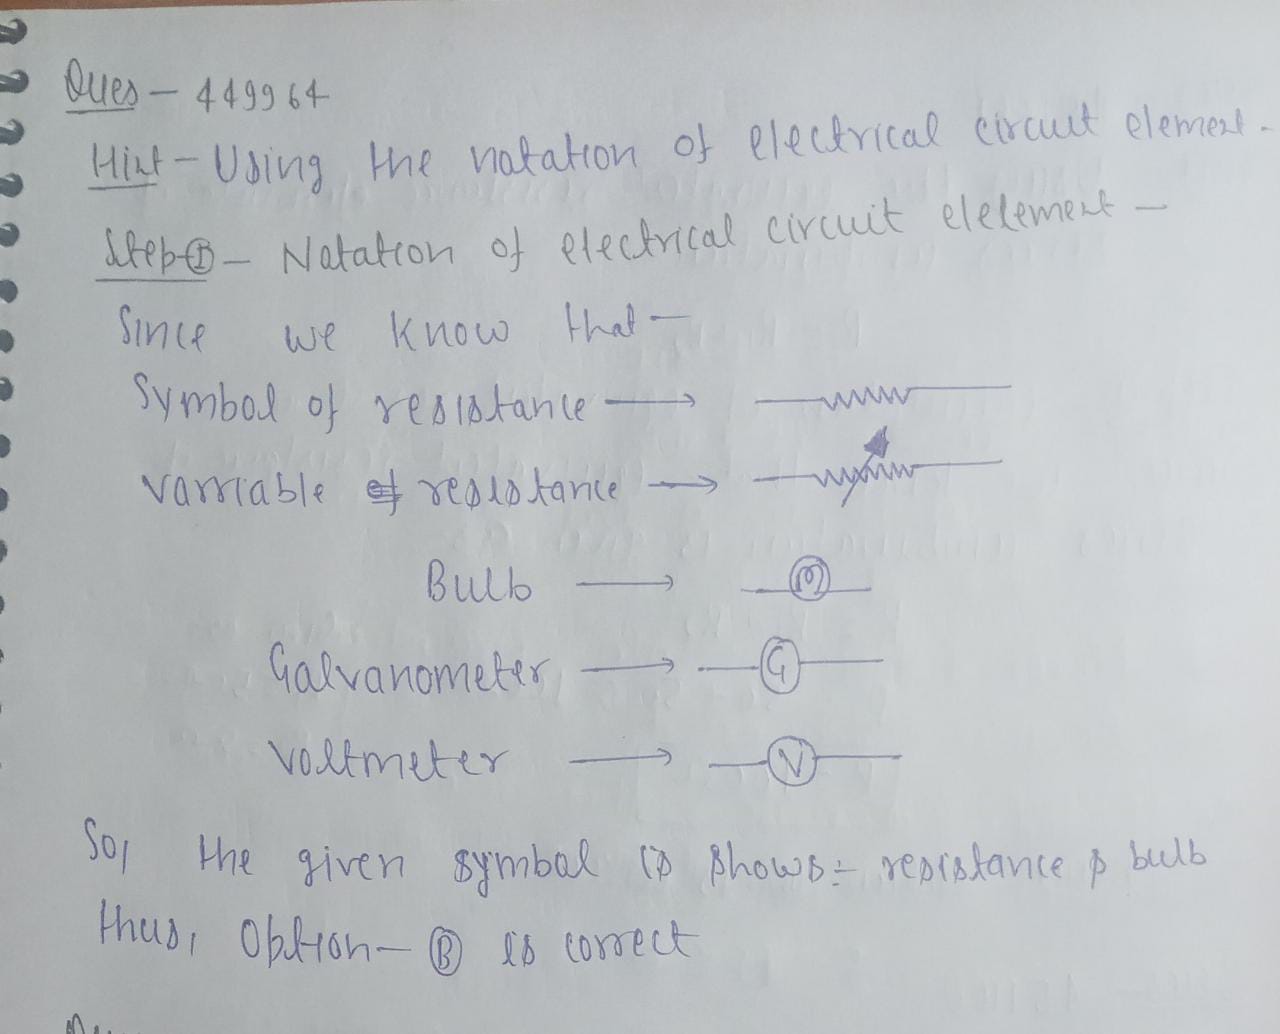 Ques - 449964
Hint - Using the notation of electrical circuit element.
Step ① - Notation of electrical circuit elelement -
Since we know that -
Symbol of resistance →
Varriable of resistance →
Bulb →
Galvanometer → G
Voltmeter → V
So, the given symbol is shows :- resistance & bulb
thus, Option - Ⓑ is correct